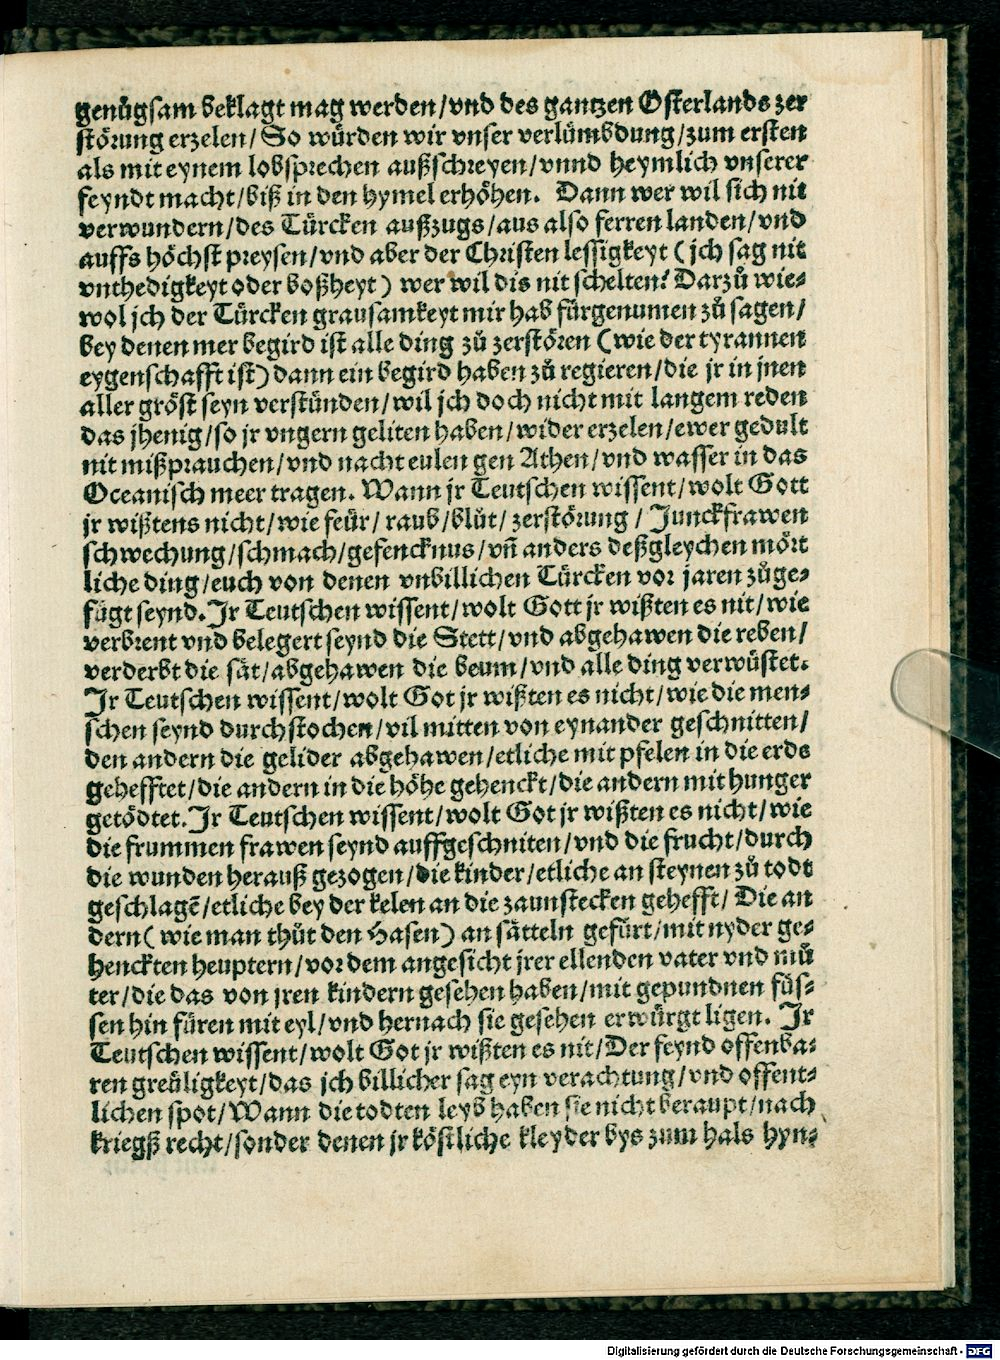 genůgsam beklagt mag werden/vnd des gantzen Osterlands zer
störung erzelen/So würden wir vnser verlümbdung/zum ersten
als mit eynem lobsprechen außschreyen/vnnd heymlich vnserer
feyndt macht/biß in den hymel erhöhen. Dann wer wil sich nit
verwundern/des Türcken außzugs/aus also ferren landen/vnd
auffs höchst preysen/vnd aber der Christen lessigkeyt (jch sag nit
vnthedigkeyt oder boßheyt) wer wil dis nit schelten? Darzů wie-
wol jch der Türcken grausamkeyt mir hab fürgenumen zů sagen/
bey denen mer begird ist alle ding zů zerstören (wie der tyrannen
eygenschafft ist) dann ein begird haben zů regieren/die jr in jnen
aller gröst seyn verstünden/wil jch doch nicht mit langem reden
das jhenig/so jr vngern geliten haben/wider erzelen/ewer gedult
nit mißprauchen/vnd nacht eulen gen Athen/vnd wasser in das
Oceanisch meer tragen. Wann jr Teutschen wissent/wolt Gott
jr wißtens nicht/wie feür/raub/blůt/zerstörung/Junckfrawen
schwechung/schmach/gefencknus/vn̄ anders deßgleychen mört
liche ding/euch von denen vnbillichen Türcken vor jaren zůge-
fügt seynd. Jr Teutschen wissent/wolt Gott jr wißten es nit/wie
verbrent vnd belegert seynd die Stett/vnd abgehawen die reben/
verderbt die sät/abgehawen die beum/vnd alle ding verwüstet.
Jr Teutschen wissent/wolt Got jr wißten es nicht/wie die men-
schen seynd durchstochen/vil mitten von eynander geschnitten/
den andern die gelider abgehawen/etliche mit pfelen in die erds
gehefftet/die andern in die höhe gehenckt/die andern mit hunger
getödtet. Jr Teutschen wissent/wolt Got jr wißten es nicht/wie
die frummen frawen seynd auffgeschniten/vnd die frucht/durch
die wunden herauß gezogen/die kinder/etliche an steynen zů todt
geschlagē/etliche bey der kelen an die zaunstecken gehefft/Die an
dern (wie man thůt den Hasen) an sätteln gefürt/mit nyder ge-
henckten heuptern/vor dem angesicht jrer ellenden vater vnd mů̊
ter/die das von jren kindern gesehen haben/mit gepundnen füs-
sen hin füren mit eyl/vnd hernach sie gesehen erwürgt ligen. Jr
Teutschen wissent/wolt Got jr wißten es nit/Der feynd offenba-
ren greüligkeyt/das jch billicher sag eyn verachtung/vnd offent-
lichen spot/Wann die todten leyb haben sie nicht beraupt/nach
kriegß recht/sonder denen jr köstliche kleyder bys zum hals hyn-
Digitalisierung gefördert durch die Deutsche Forschungsgemeinschaft - DFG